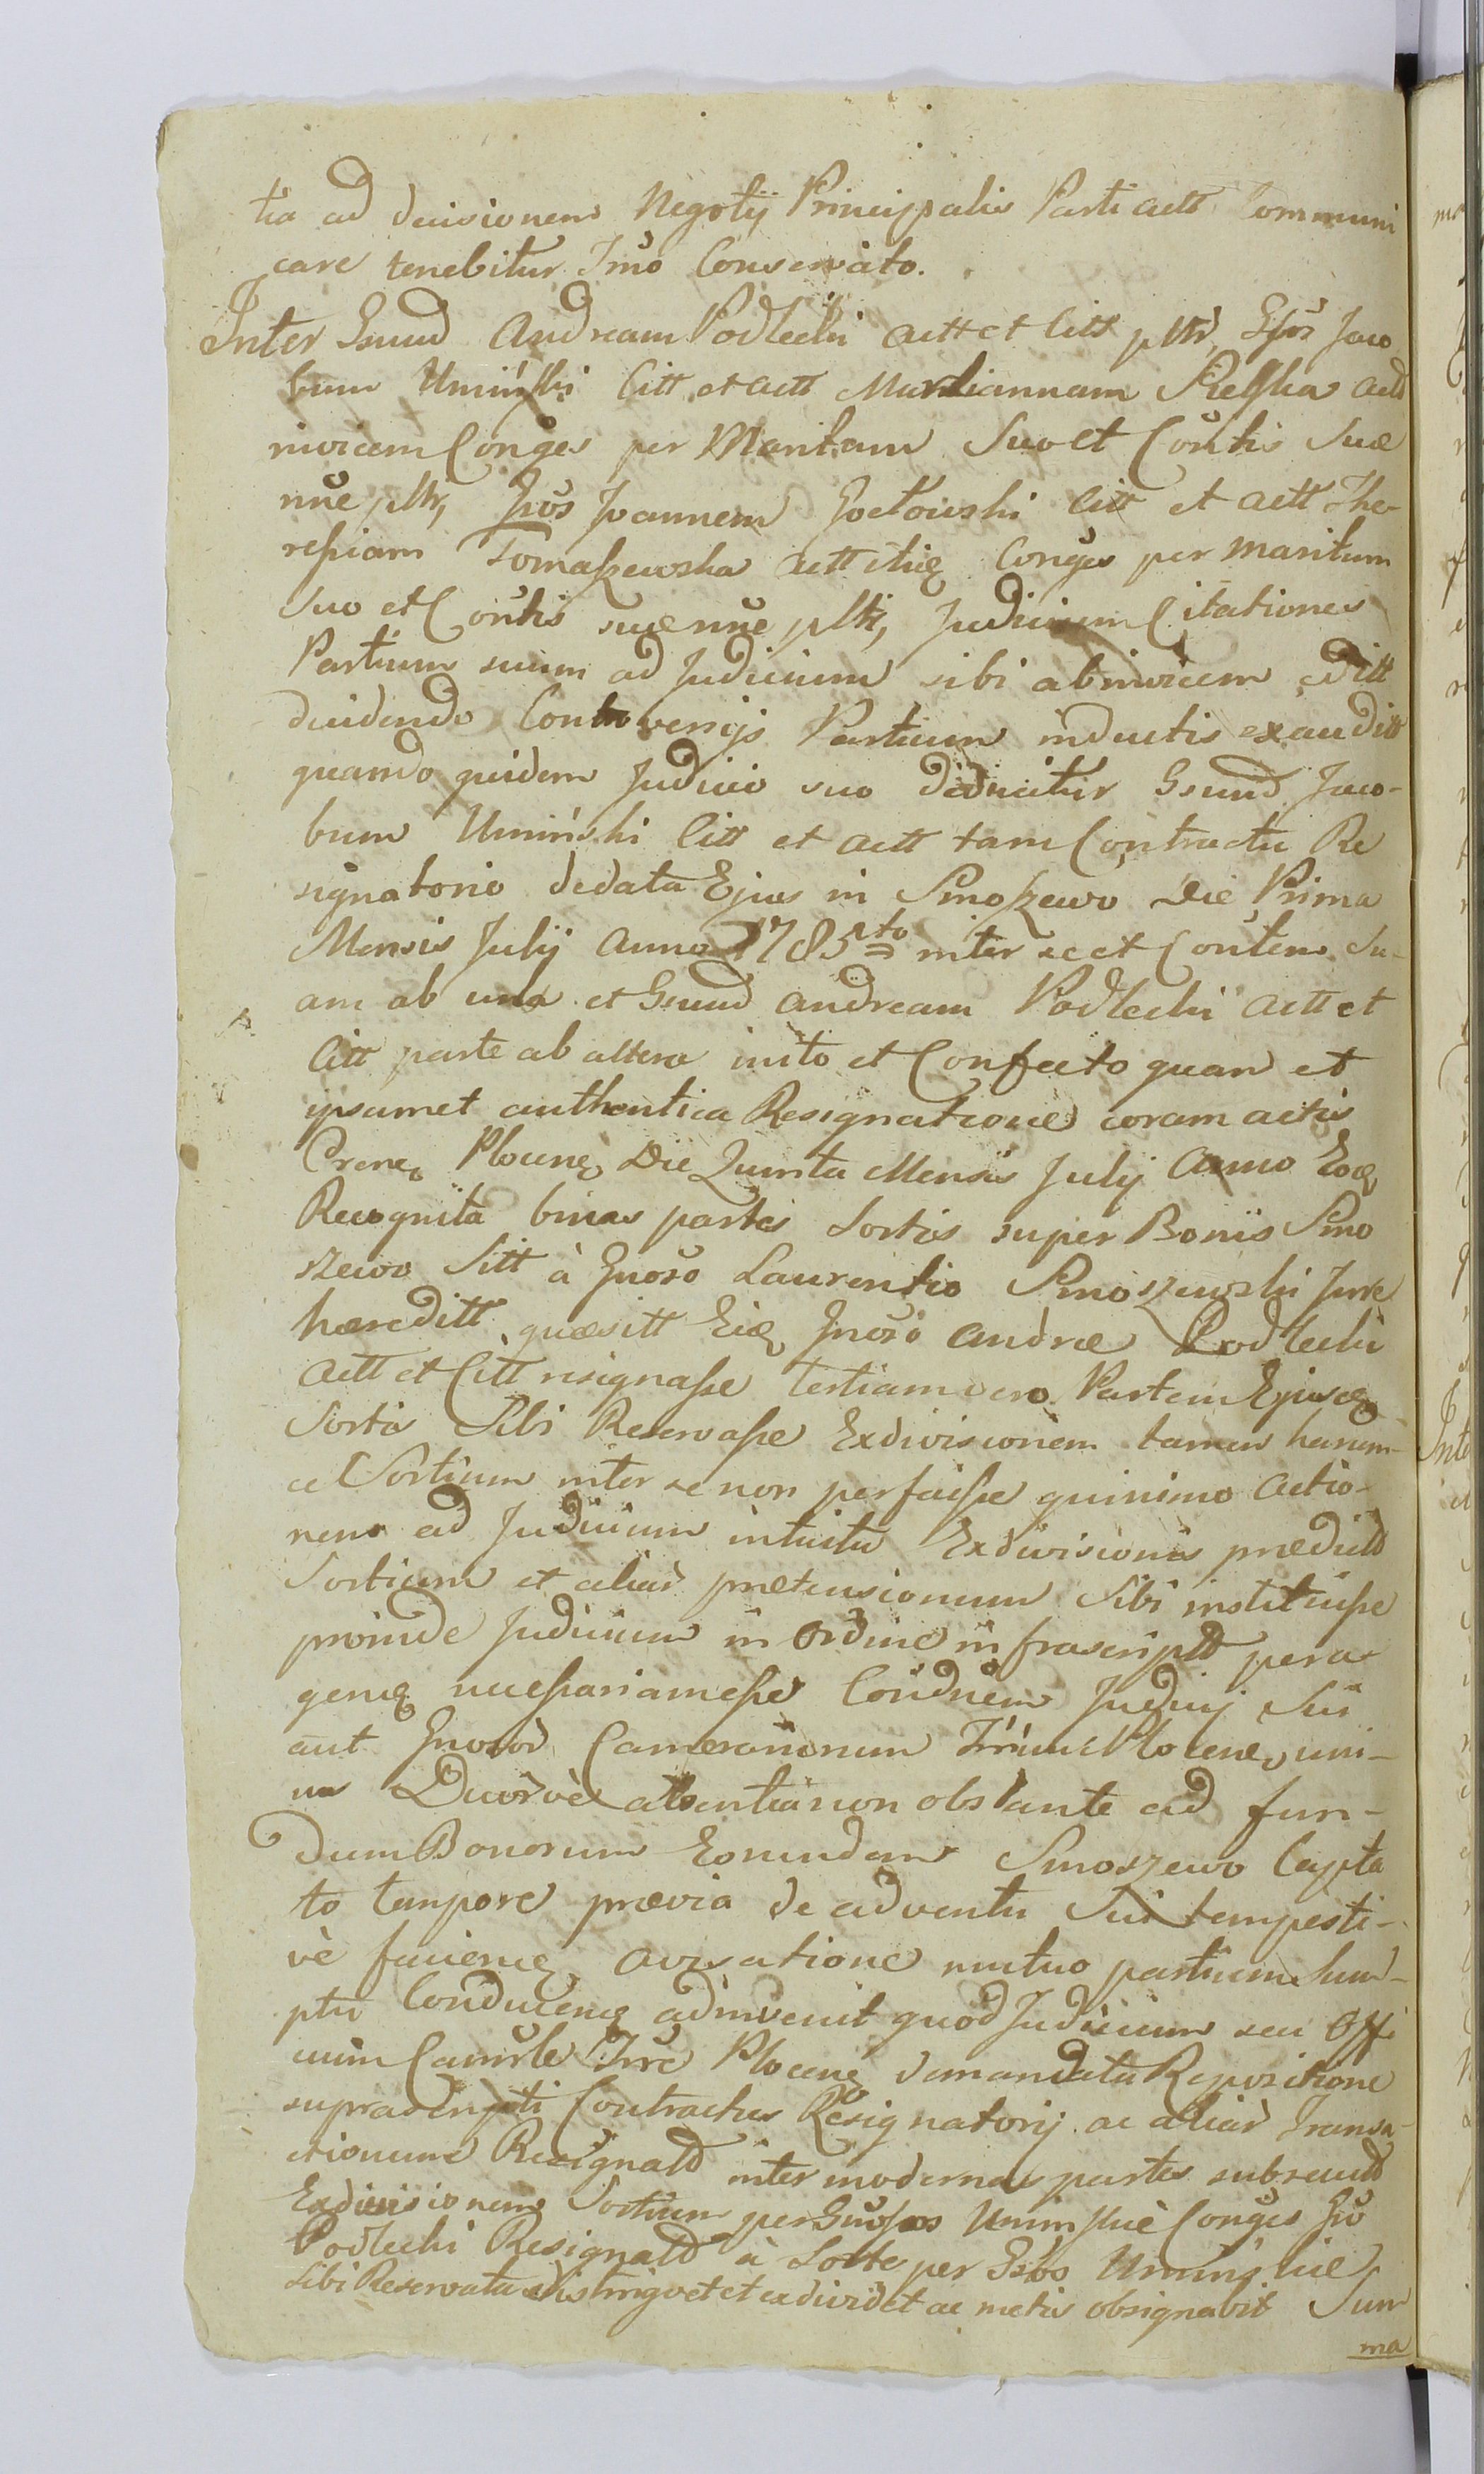 tia ad decisionem Negotij Principalis Parti actt Communi
care tenebitur Imo Conservato.
Inter Gnund Andream Podlecki actt et Citt ptt, Gsos Jaco
bum Uminski Citt et actt Mariannam actt
invicem Conges per Maritum Suo et Contis Suæ
nne ptt, Gnos Joannem Citt et actt The-
resiam Tomaszewska actt Conges per maritum
Suo et Contis suæ nne ptt, Judicium Citationes
Partium suum ad Judicium sibi abinvicem editt
decidendo Controversijs Partium inductis exauditt
quando quidem Judicio suo deducitur Gnund Jaco-
bum Uminski Citt et actt tam Contractu Re
signatorio de data Ejus in Smoszewo Die Prima
Mensis Julij Anno 1785to inter se et Contem Su-
am ab una et Gnund Andream Podlecki actt et
Citt parte ab altera inito et Confecto quam et
ipsamet authentica Resignatione coram actis
Plocens Die Quinta Mensis Julij Anno Eoq
Recognita binas partes Sortis super Bonis Smo
szewo Sitt à Gnoso Laurentio Smoszewski Jure
hæreditt quæsitt Eiq Gnoso Andreæ Podlecki
actt et Citt resignasse tertiam vero Partem Ejusq
Sortis Sibi Reservasse Exdivisionem tamen harum-
ce Sortium inter se non perfecisse quinimo actio-
nem ad Judicium intuitu Exdivisionis prædictt
Sortium et aliar prætensionum Sibi instituisse
proinde Judicium in Ordine infrascriptt pera
genq necessariam esse Condnem Judicij Sui
aut Gnosor Camerariorum Plocens, uni-
us Duorve absentia non obstante ad fun-
dum Bonorum Eorundem Smoszewo Capta
to tempore prævia de adventu Sui tempesti-
vè facienq avisatione mutuo partium Sum-
ptu Conducenq adinvenit quod Judicium seu Offi
cium Camrle Plocens demandata Repositione
supradescripti Contractus Resignatorij ac aliar Transa-
ctionum Resignatt inter modernas partes subsecutt
Exdivisionem Sortium per Gnosos Uminskie Conges Gno
Podlecki Resignatt à Sorte per Gsos Uminskie
Sibi Reservata distinguet et exdividet ac metis obsignabit Sum
ma